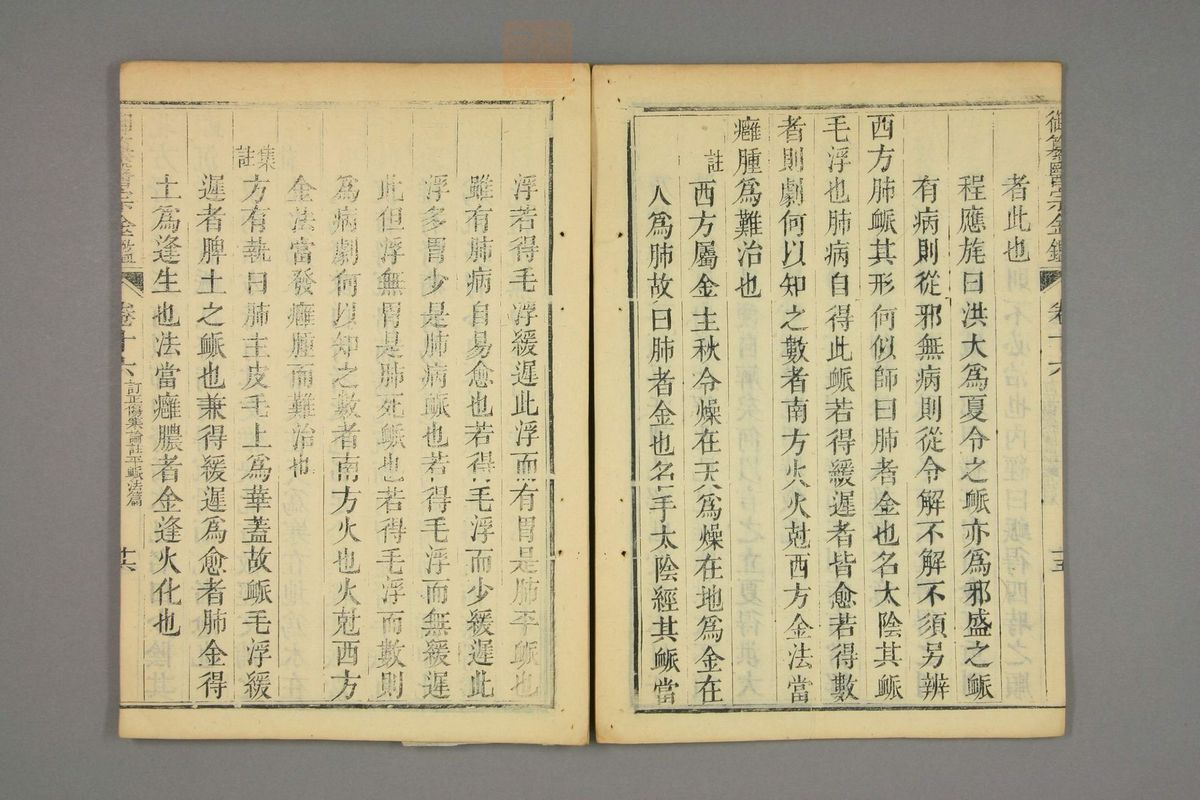 御纂醫宗金鑑 卷十六
者此也
程應旄曰洪大爲夏令之脈亦爲邪盛之脈
有病則從邪無病則從令解不解不須另辨
西方肺脈其形何似師曰肺者金也名太陰其脈
毛浮也肺病自得此脈若得緩遲者皆愈若得數
者則劇何以知之數者南方火火尅西方金法當
癰腫爲難治也
註
西方屬金主秋令燥在天爲燥在地爲金在
人爲肺故曰肺者金也名手太陰經其脈當
浮若得毛浮緩遲此浮而有胃是肺平脈也
雖有肺病自易愈也若得毛浮而少緩遲此
浮多胃少是肺病脈也若得毛浮而無緩遲
此但浮無胃是肺死脈也若得毛浮而數則
爲病劇何以知之數者南方火也火尅西方
金法當發癰腫而難治也
集註
方有執曰肺主皮毛上爲華蓋故脈毛浮緩
遲者脾土之脈也兼得緩遲爲愈者肺金得
土爲逢生也法當癰膿者金逢火化也
御纂醫宗金鑑 卷十六 訂正傷寒論註平脈法篇